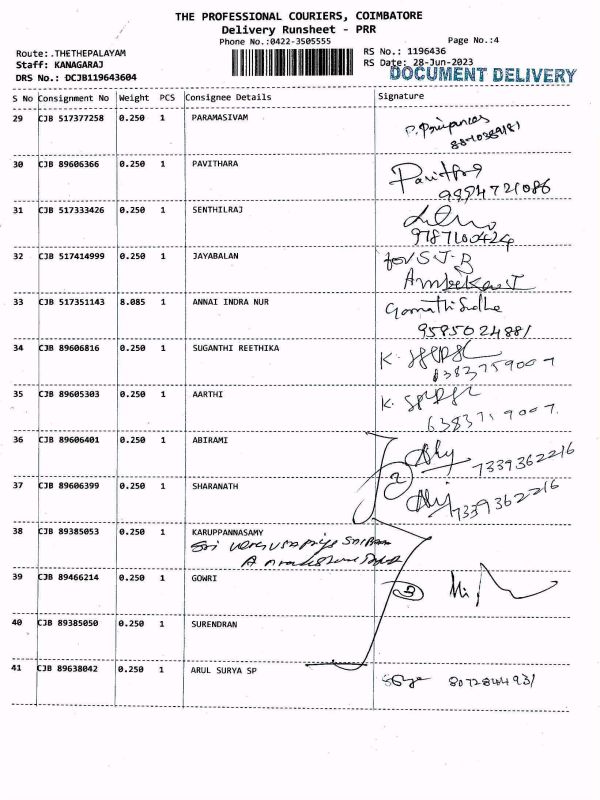 THE PROFESSIONAL COURIERS, COIMBATORE
Delivery Runsheet - PRR
Phone No.:0422-3505555
Page No.:4
Route:.THETHEPALAYAM
RS No.: 1196436
Staff: KANAGARAJ
RS Date: 28-Jun-2023
DRS No.: DCJB119643604
DOCUMENT DELIVERY
S No Consignment No Weight PCS Consignee Details Signature
29 CJB 517377258 0.250 1 PARAMASIVAM
30 CJB 89606366 0.250 1 PAVITHARA
9894721086
31 CJB 517333426 0.250 1 SENTHILRAJ
9787100424
32 CJB 517414999 0.250 1 JAYABALAN for S.J.B
33 CJB 517351143 8.085 1 ANNAI INDRA NUR
9585024881
34 CJB 89606816 0.250 1 SUGANTHI REETHIKA K.
6383759007
35 CJB 89605303 0.250 1 AARTHI K.
6383759007
36 CJB 89606401 0.250 1 ABIRAMI 7339362216
2
37 CJB 89606399 0.250 1 SHARANATH 7339362216
38 CJB 89385053 0.250 1 KARUPPANNASAMY
Sri
39 CJB 89466214 0.250 1 GOWRI 3
40 CJB 89385050 0.250 1 SURENDRAN
41 CJB 89638042 0.250 1 ARUL SURYA SP 8072844931